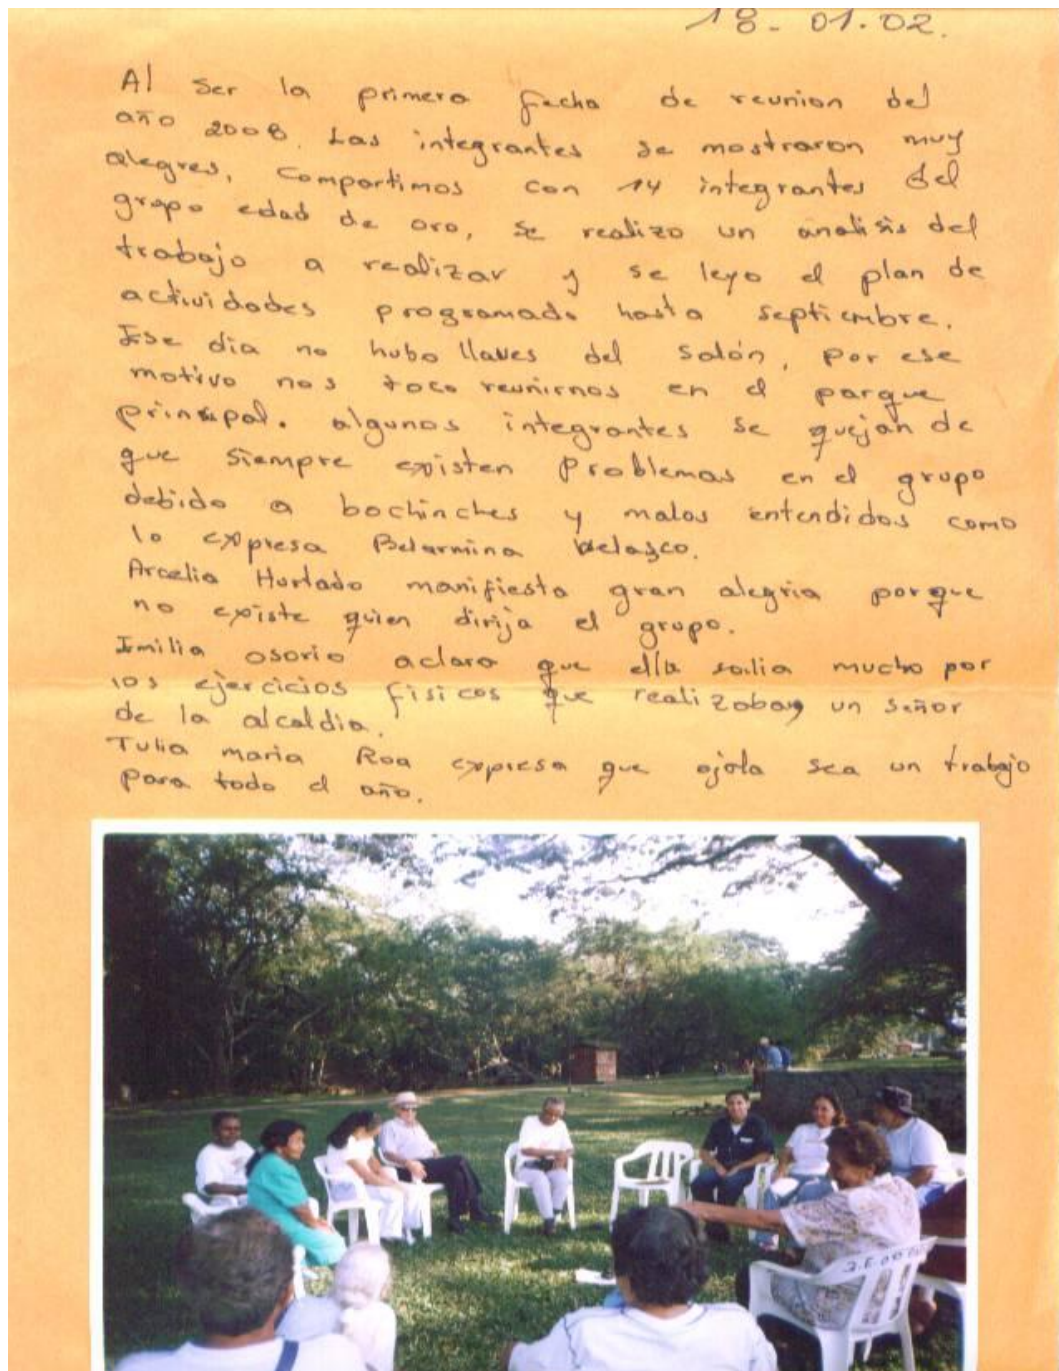 18-01-02.
Al ser la primera fecha de reunion del
año 2008. Las integrantes se mostraron muy
alegres, compartimos con 14 integrantes del
grupo edad de oro, se realizo un analisis del
trabajo a realizar y se leyo el plan de
actividades programado hasta septiembre.
Ese dia no hubo llaves del salón, por ese
motivo nos toco reunirnos en el parque
principal. algunos integrantes se quejan de
que siempre existen problemas en el grupo
debido a bochinches y malos entendidos como
lo expresa Belarmina Velasco.
Arcelia Hurtado manifiesta gran alegria porque
no existe quien dirija el grupo.
Emilia Osorio aclara que ella salia mucho por
los ejercicios fisicos que realizaban un señor
de la alcaldia.
Tulia maria Roa expresa que ojala sea un trabajo
para todo el año.